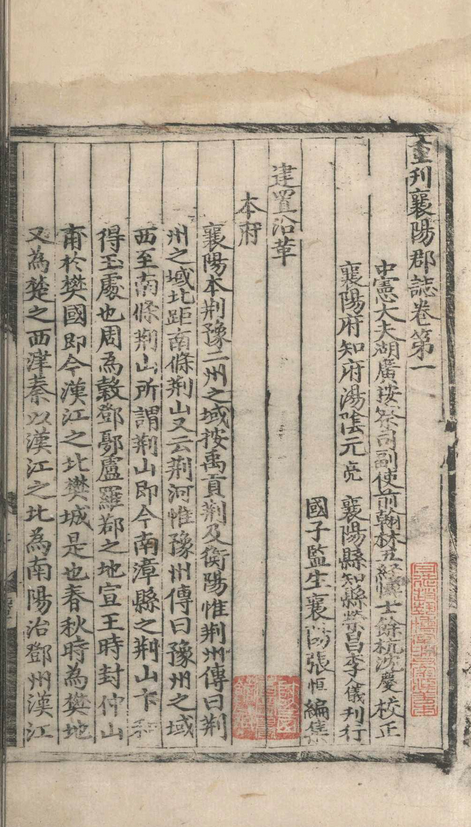 重刊襄陽郡誌卷第一
中憲大夫湖廣按察司副使前翰林五經博士餘杭沈慶校正
襄陽府知府湯陰元亮 襄陽縣知縣晉昌李儀刊行
國子監生襄陽張恒編集
建置沿革
本府
襄陽本荆豫二州之域按禹貢荆及衡陽惟荆州傳曰荆
州之域北距南條荆山又云荆河惟豫州傳曰豫州之域
西至南條荆山所謂荆山即今南漳縣之荆山卞和
得玉處也周為穀鄧鄾盧羅鄀之地宣王時封仲山
甫於樊國即今漢江之北樊城是也春秋時為楚地
又為楚之西津秦以漢江之北為南陽治鄧州漢江